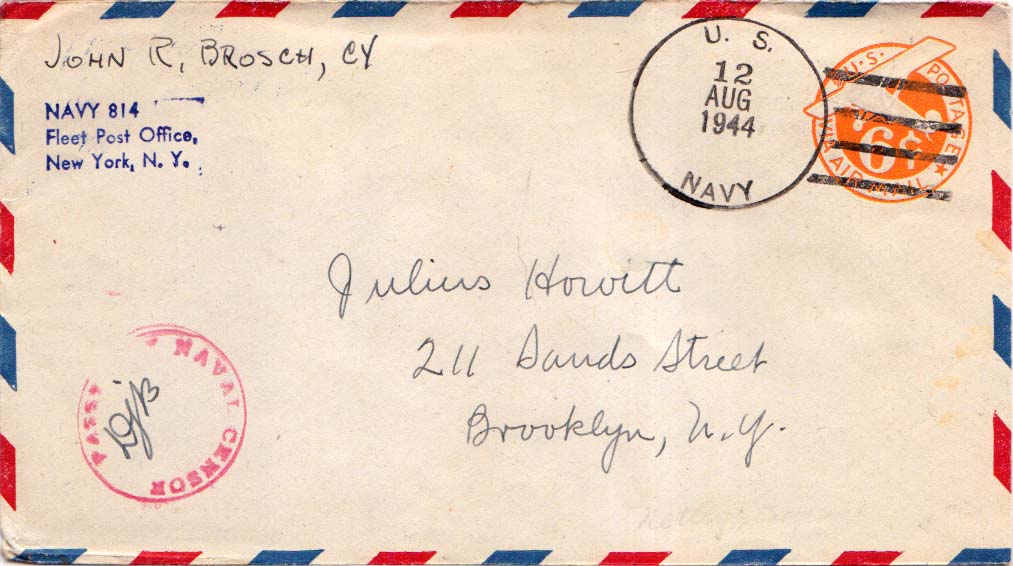 JOHN R. BROSCH, CY
NAVY 814
Fleet Post Office,
New York, N. Y.
U. S.
12
AUG
1944
NAVY
U.S. POSTAGE
6¢
VIA AIR MAIL
Julius Howitt
211 Sands Street
Brooklyn, N.Y.
PASSED NAVAL CENSOR